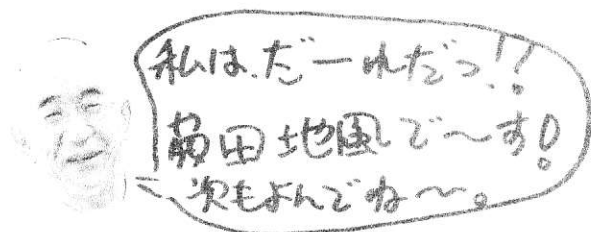 私は、だーれだっ!!
菊田地風で〜す!
次もよんでね〜。